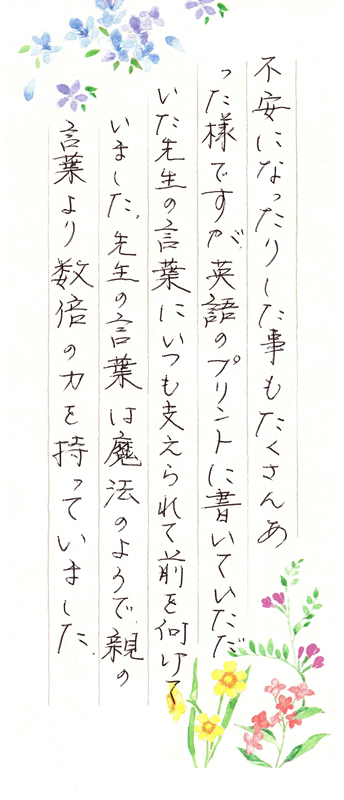 不安になったりした事もたくさんあ
った様ですが、英語のプリントに書いていただ
いた先生の言葉にいつも支えられて前を向けて
いました。先生の言葉は魔法のようで、親の
言葉より数倍の力を持っていました。